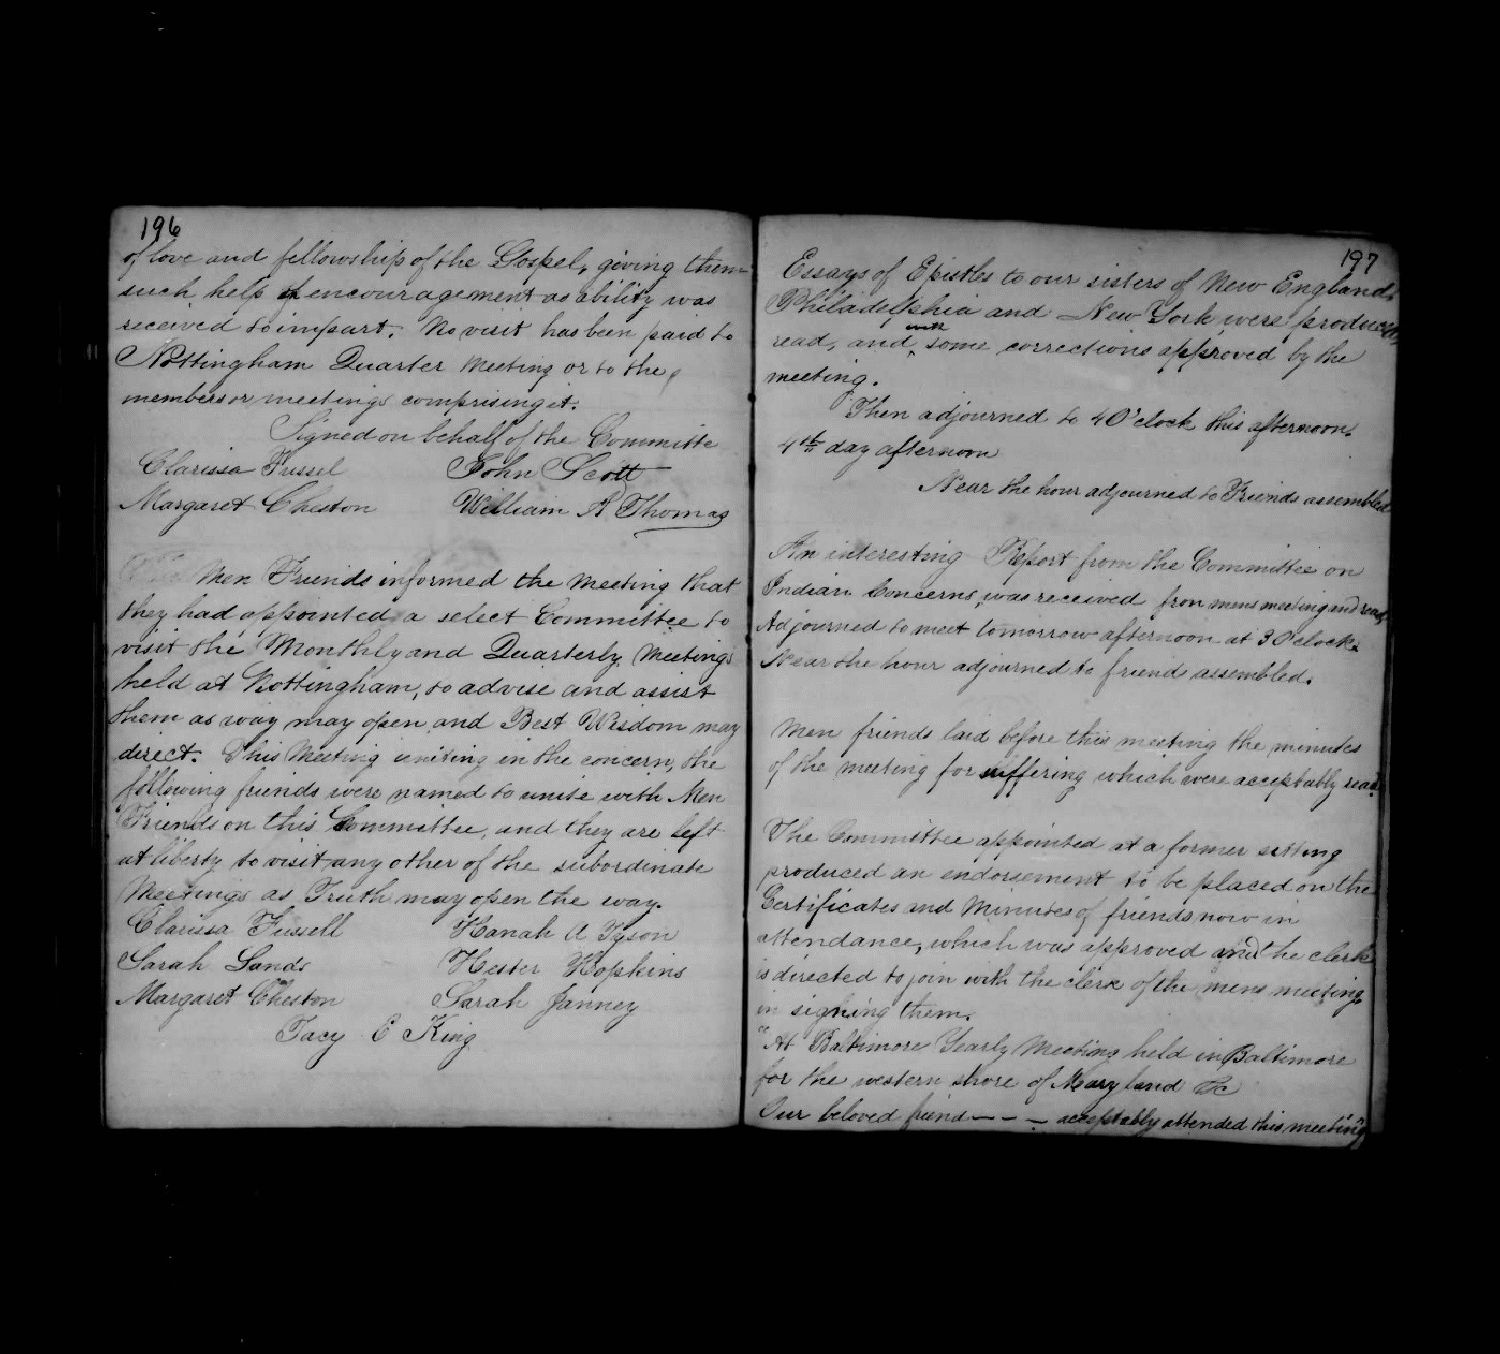 196
of love and fellowship of the Gospel, giving them
such help & encouragement as ability was
received to impart. No visit has been paid to
Nottingham Quarter Meeting or to the
members or meetings comprising it.
Signed on behalf of the Committe
Clarissa Fussel John Scott
Margaret Cheston William A Thomas
Men Friends informed the Meeting that
they had appointed a select Committee to
visit the Monthly and Quarterly Meetings
held at Nottingham, to advise and assist
them as way may open and Best Wisdom may
direct. This Meeting uniting in the concern, the
following friends were named to unite with Men
Friends on this Committee, and they are left
at liberty to visit any other of the subordinate
Meetings as Truth may open the way.
Clarissa Fussell Hanah A Tyson
Sarah Sands Hester Hopkins
Margaret Cheston Sarah Janney
Tacy E King
197
Essays of Epistles to our sisters of New England,
Philadelphia and New York were produced,
read, and with some corrections approved by the
meeting.
Then adjourned to 4 O'clock this afternoon.
4th day afternoon
Near the hour adjourned to Friends assembled
An interesting Report from the Committee on
Indian Concerns, was received from mens meeting and read,
Adjourned to meet tomorrow afternoon at 3 O'clock.
Near the hour adjourned to friends assembled.
Men friends laid before this meeting the minutes
of the meeting for suffering which were acceptably read.
The Committee appointed at a former sitting
produced an endorsement to be placed on the
Certificates and Minutes of friends now in
attendance, which was approved and the clerk
is directed to join with the clerk of the mens meeting
in signing them.
"At Baltimore Yearly Meeting held in Baltimore
for the western shore of Maryland &c
Our beloved friend - - - acceptably attended this meeting"